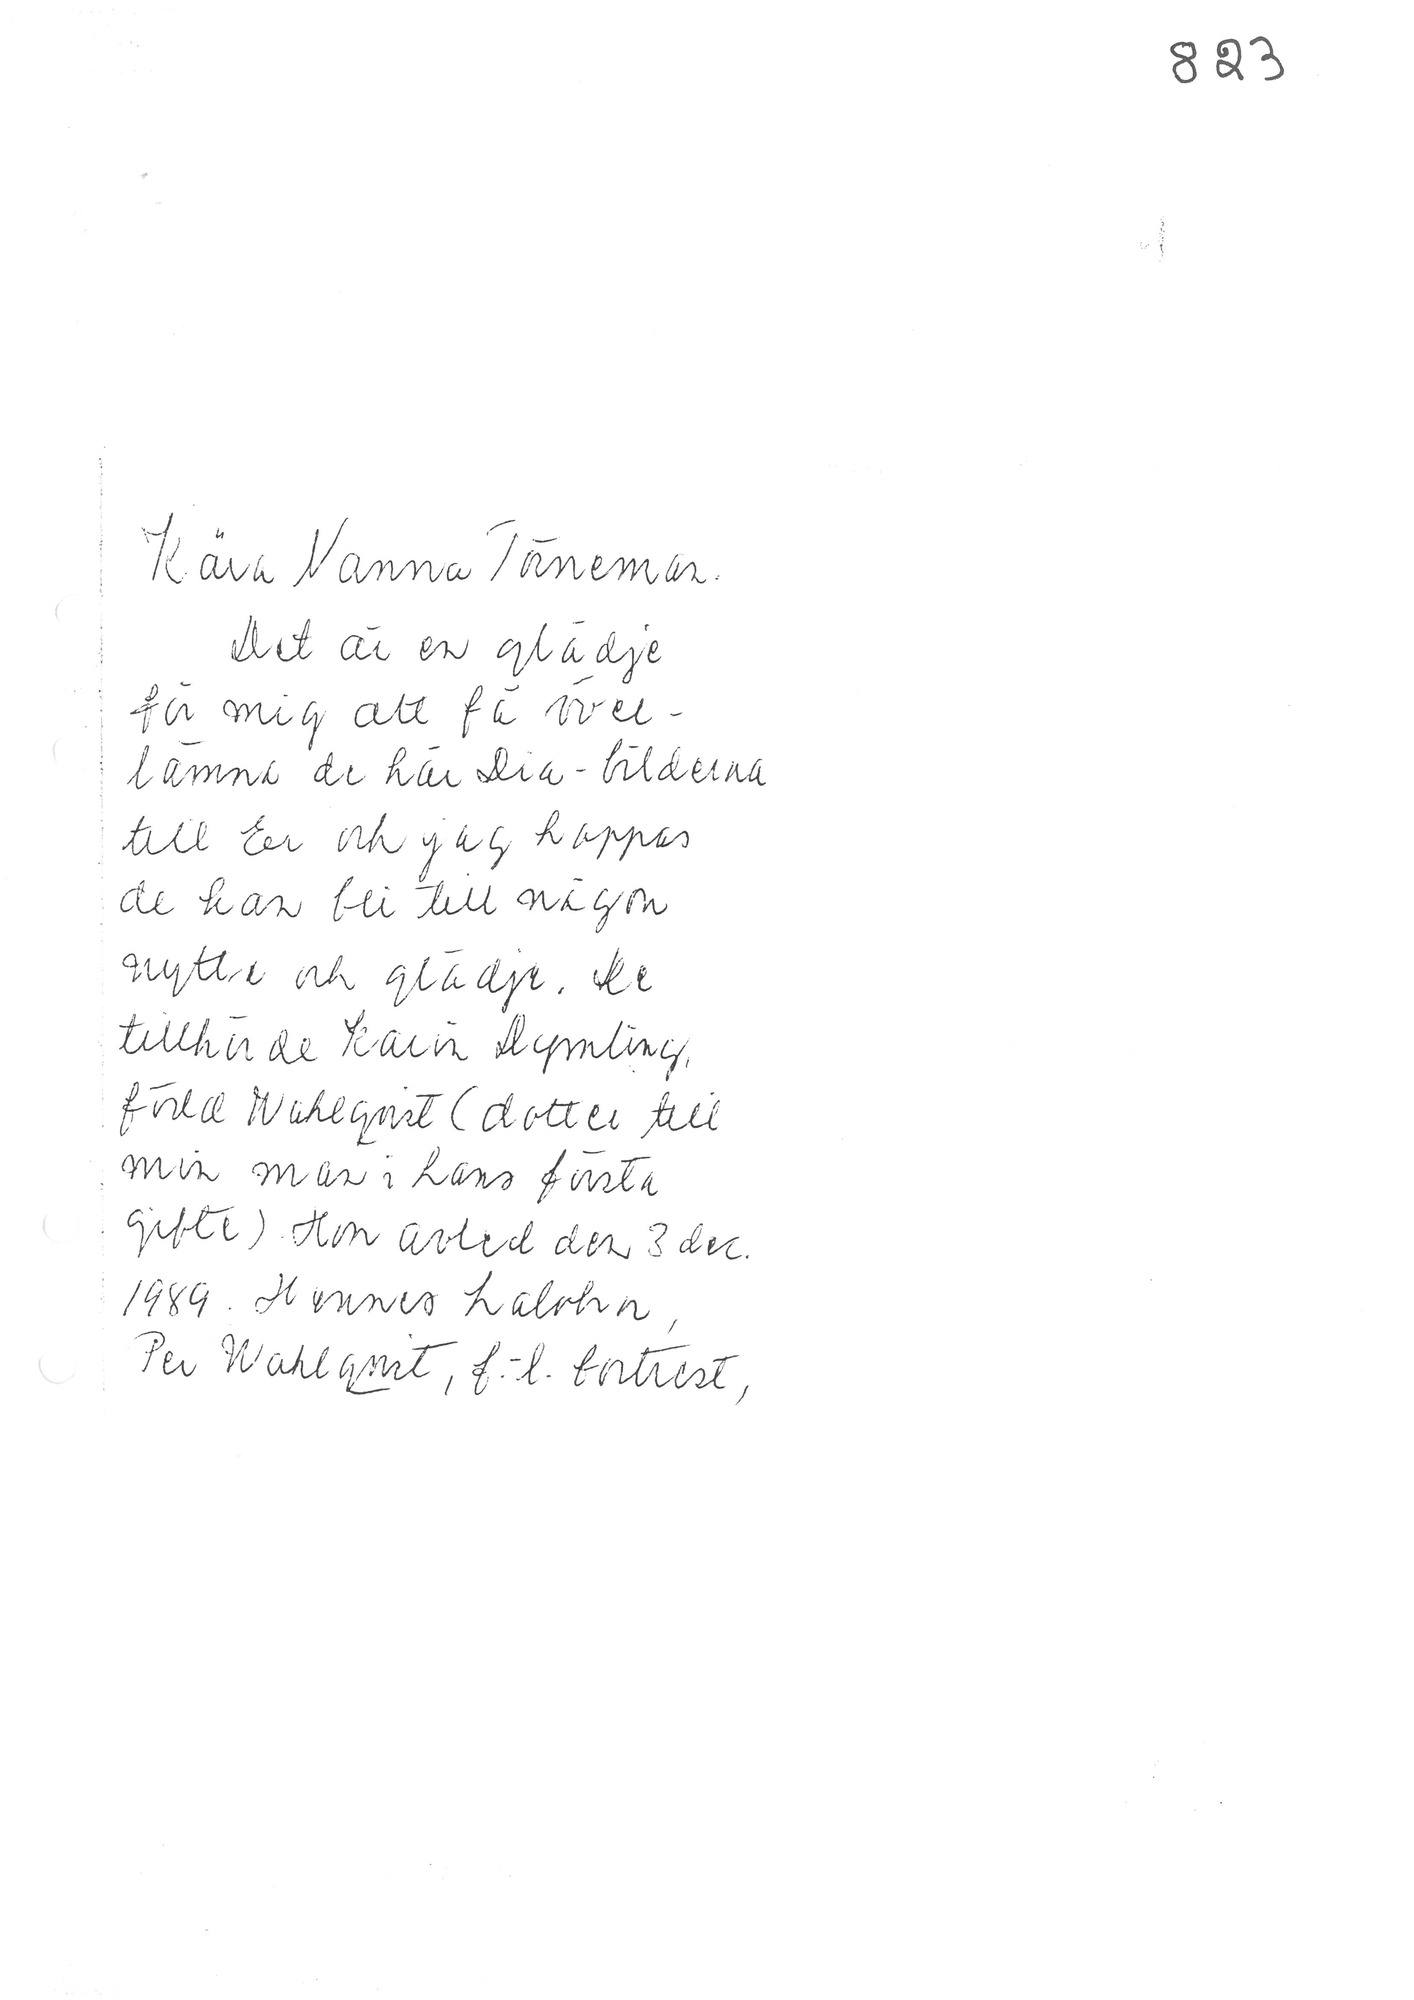 823
Kära Nanna Törneman.
Det är en glädje
för mig att få över-
lämna de här Dia-bilderna
till Er och jag hoppas
de kan bli till någon
nytta och glädje. De
tillhörde Karin Dymling,
född Wahlqvist (dotter till
min man i hans första
gifte) Hon avled den 3 dec.
1989. Hennes halvbror,
Per Wahlqvist, f.-l. bortrest,